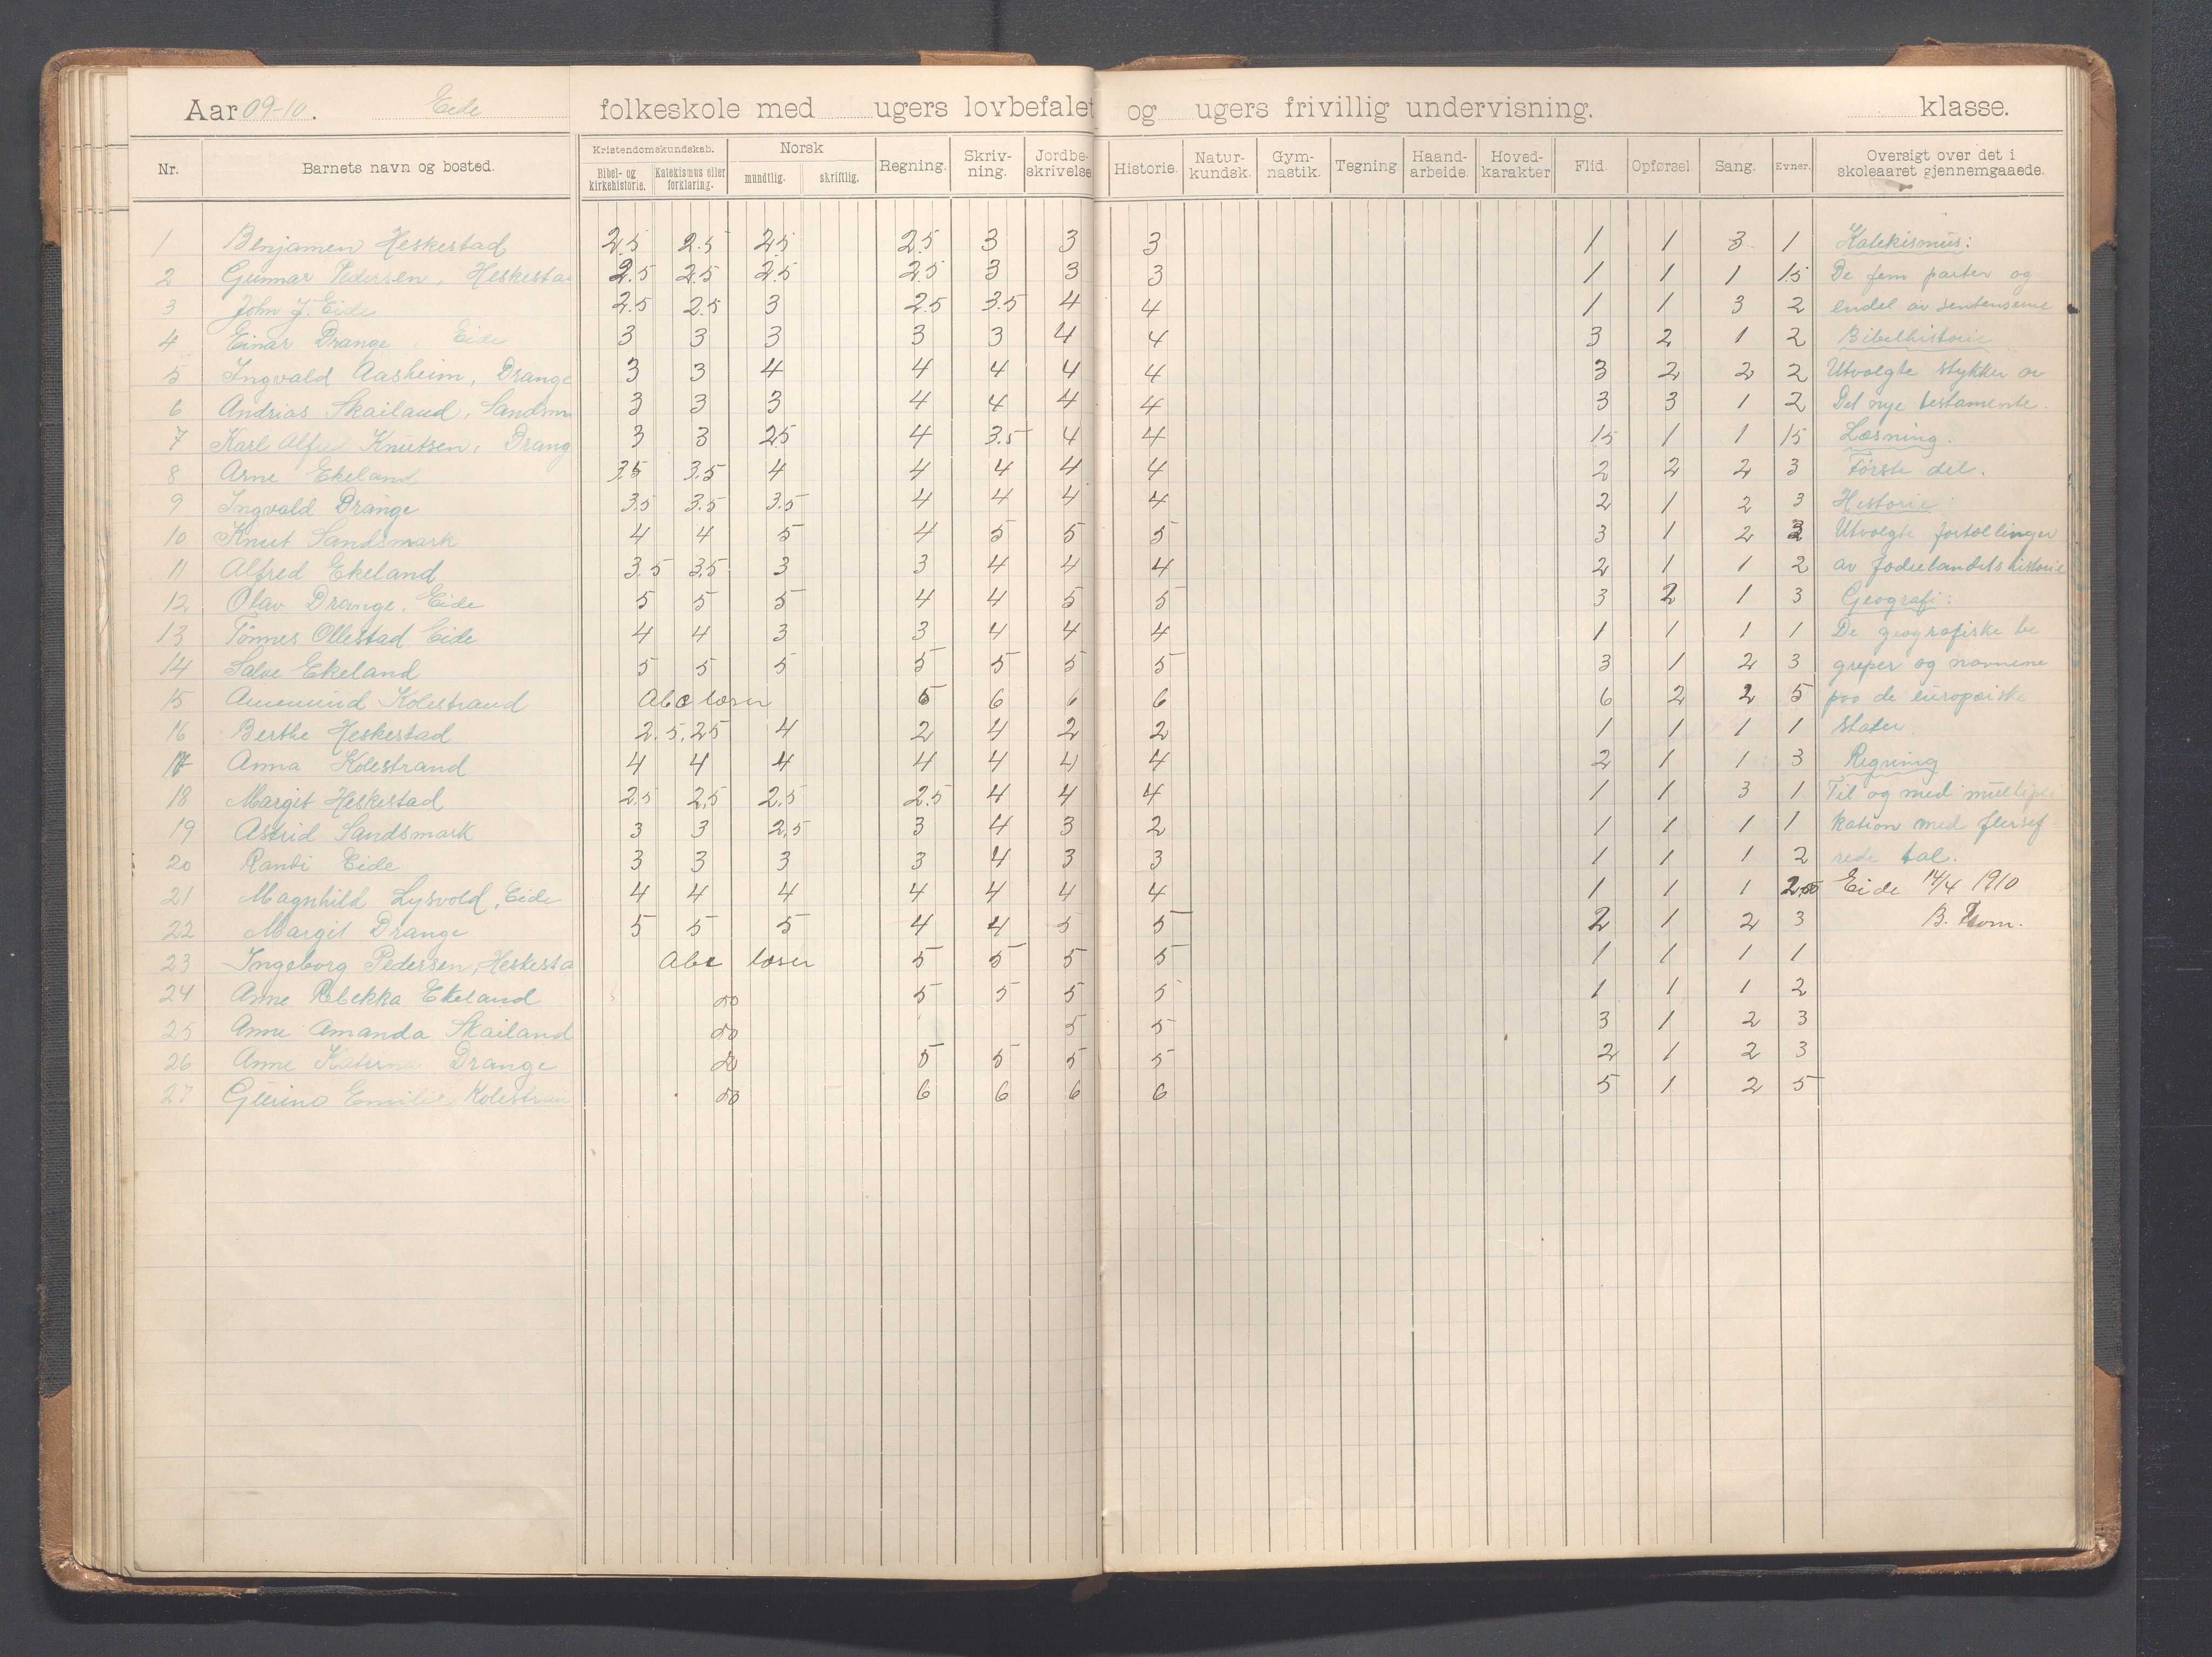 Aar 09-10. Eide folkeskole med ugers lovbefalet og ugers frivillig undervisning. klasse.
Nr. Barnets navn og bosted. Kristendomskundskab. Bibel- og kirkehistorie. Katekismus eller forklaring. Norsk mundtlig. skriftlig. Regning. Skriv-ning. Jordbe-skrivelse Historie. Natur-kundsk. Gym-nastik. Tegning Haand-arbeide. Hoved-karakter Flid. Opførsel Sang. Evner. Oversigt over det i skoleaaret gjennemgaaede.
1 Benjamen Heskestad 2.5 2.5 2.5 2.5 3 3 3 1 1 3 1 Katekismus:
2 Gunnar Pedersen, Heskesta 2.5 2.5 2.5 2.5 3 3 3 1 1 1 1.5 De fem parter og
3 John J. Eide 2.5 2.5 3 2.5 3.5 4 4 1 1 3 2 endel av sentenserne
4 Einar Drange Eide 3 3 3 3 3 4 4 3 2 1 2 Bibelhistorie
5 Ingvald Aasheim, Drange 3 3 4 4 4 4 4 3 2 2 2 Utvalgte stykker av
6 Andrias Skailand, Sandsm 3 3 3 4 4 4 4 3 3 1 2 Det nye testamente.
7 Karl Alfred Knutsen, Drang 3 3 2.5 4 3.5 4 4 1.5 1 1 1.5 Læsning.
8 Arne Ekeland 3.5 3.5 4 4 4 4 4 2 2 2 3 Første del.
9 Ingvald Drange 3.5 3.5 3.5 4 4 4 4 2 1 2 3 Historie
10 Knut Sandsmark 4 4 5 4 5 5 5 3 1 2 3 Utvalgte fortællinger
11 Alfred Ekeland 3.5 3.5 3 3 4 4 4 2 1 1 2 av fædrelandets historie
12 Olav Drange, Eide 5 5 5 4 4 5 5 3 2 1 3 Geografi:
13 Tönnes Ollestad Eide 4 4 3 3 4 4 4 1 1 1 1 De geografiske be
14 Salve Ekeland 5 5 5 5 5 5 5 3 1 2 3 greper og navnene
15 Kolestrand Abc læser 5 6 6 6 6 2 2 5 paa de europæiske
16 Berthe Heskestad 2.5, 2.5 4 2 4 2 2 1 1 1 1 stater
17 Anna Kolestrand 4 4 4 4 4 4 4 2 1 1 3 Regning
18 Margit Heskestad 2.5 2.5 2.5 2.5 4 4 4 1 1 3 1 Til og med multipli
19 Astrid Sandsmark 3 3 2.5 3 4 3 2 1 1 1 1 kation med flersef=
20 Randi Eide 3 3 3 3 4 3 3 1 1 1 2 rede tal.
21 Magnhild Lysvold, Eide 4 4 4 4 4 4 4 1 1 1 2,50 Eide 14/4 1910
22 Margit Drange 5 5 5 4 4 5 5 2 1 2 3 B.
23 Ingeborg Pedersen, Heskesta Abc læser 5 5 5 5 1 1 1 1
24 Anne Rebekka Ekeland do 5 5 5 5 1 1 1 2
25 Anne Amanda Skailand do 5 5 3 1 2 3
26 Anne Katerina Drange do 5 5 5 5 2 1 2 3
27 Emilie Kolestran do 6 6 6 6 5 1 2 5